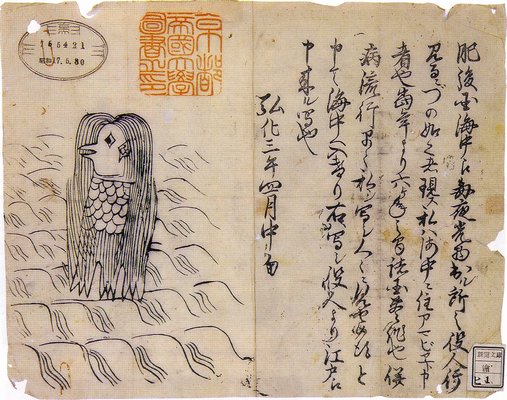 肥後国海中え毎夜光物出ル所之役人行
見るニづの如之者現ス私ハ海中ニ住アマビヱト申
者也当年より六ケ年之間諸国豊作也併
病流行早々私ヲ写シ人々ニ見セ候得と
申て海中へ入けり右写シ役人より江戸え
申来ル写也
弘化三年四月中旬
京都
帝國大學
圖書之印
165421
昭和17.6.30
新聞文庫